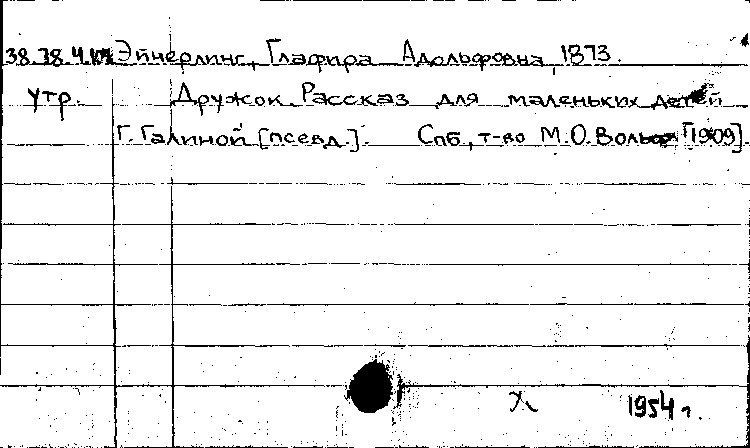 38.78.4. Эйнерлинг, Глафира Адольфовна, 1873.
утр. Дружок. Рассказ для маленьких детей
Г. Галиной [псевд.]. Спб., т-во М.О. Вольф [1909].
1954 г.